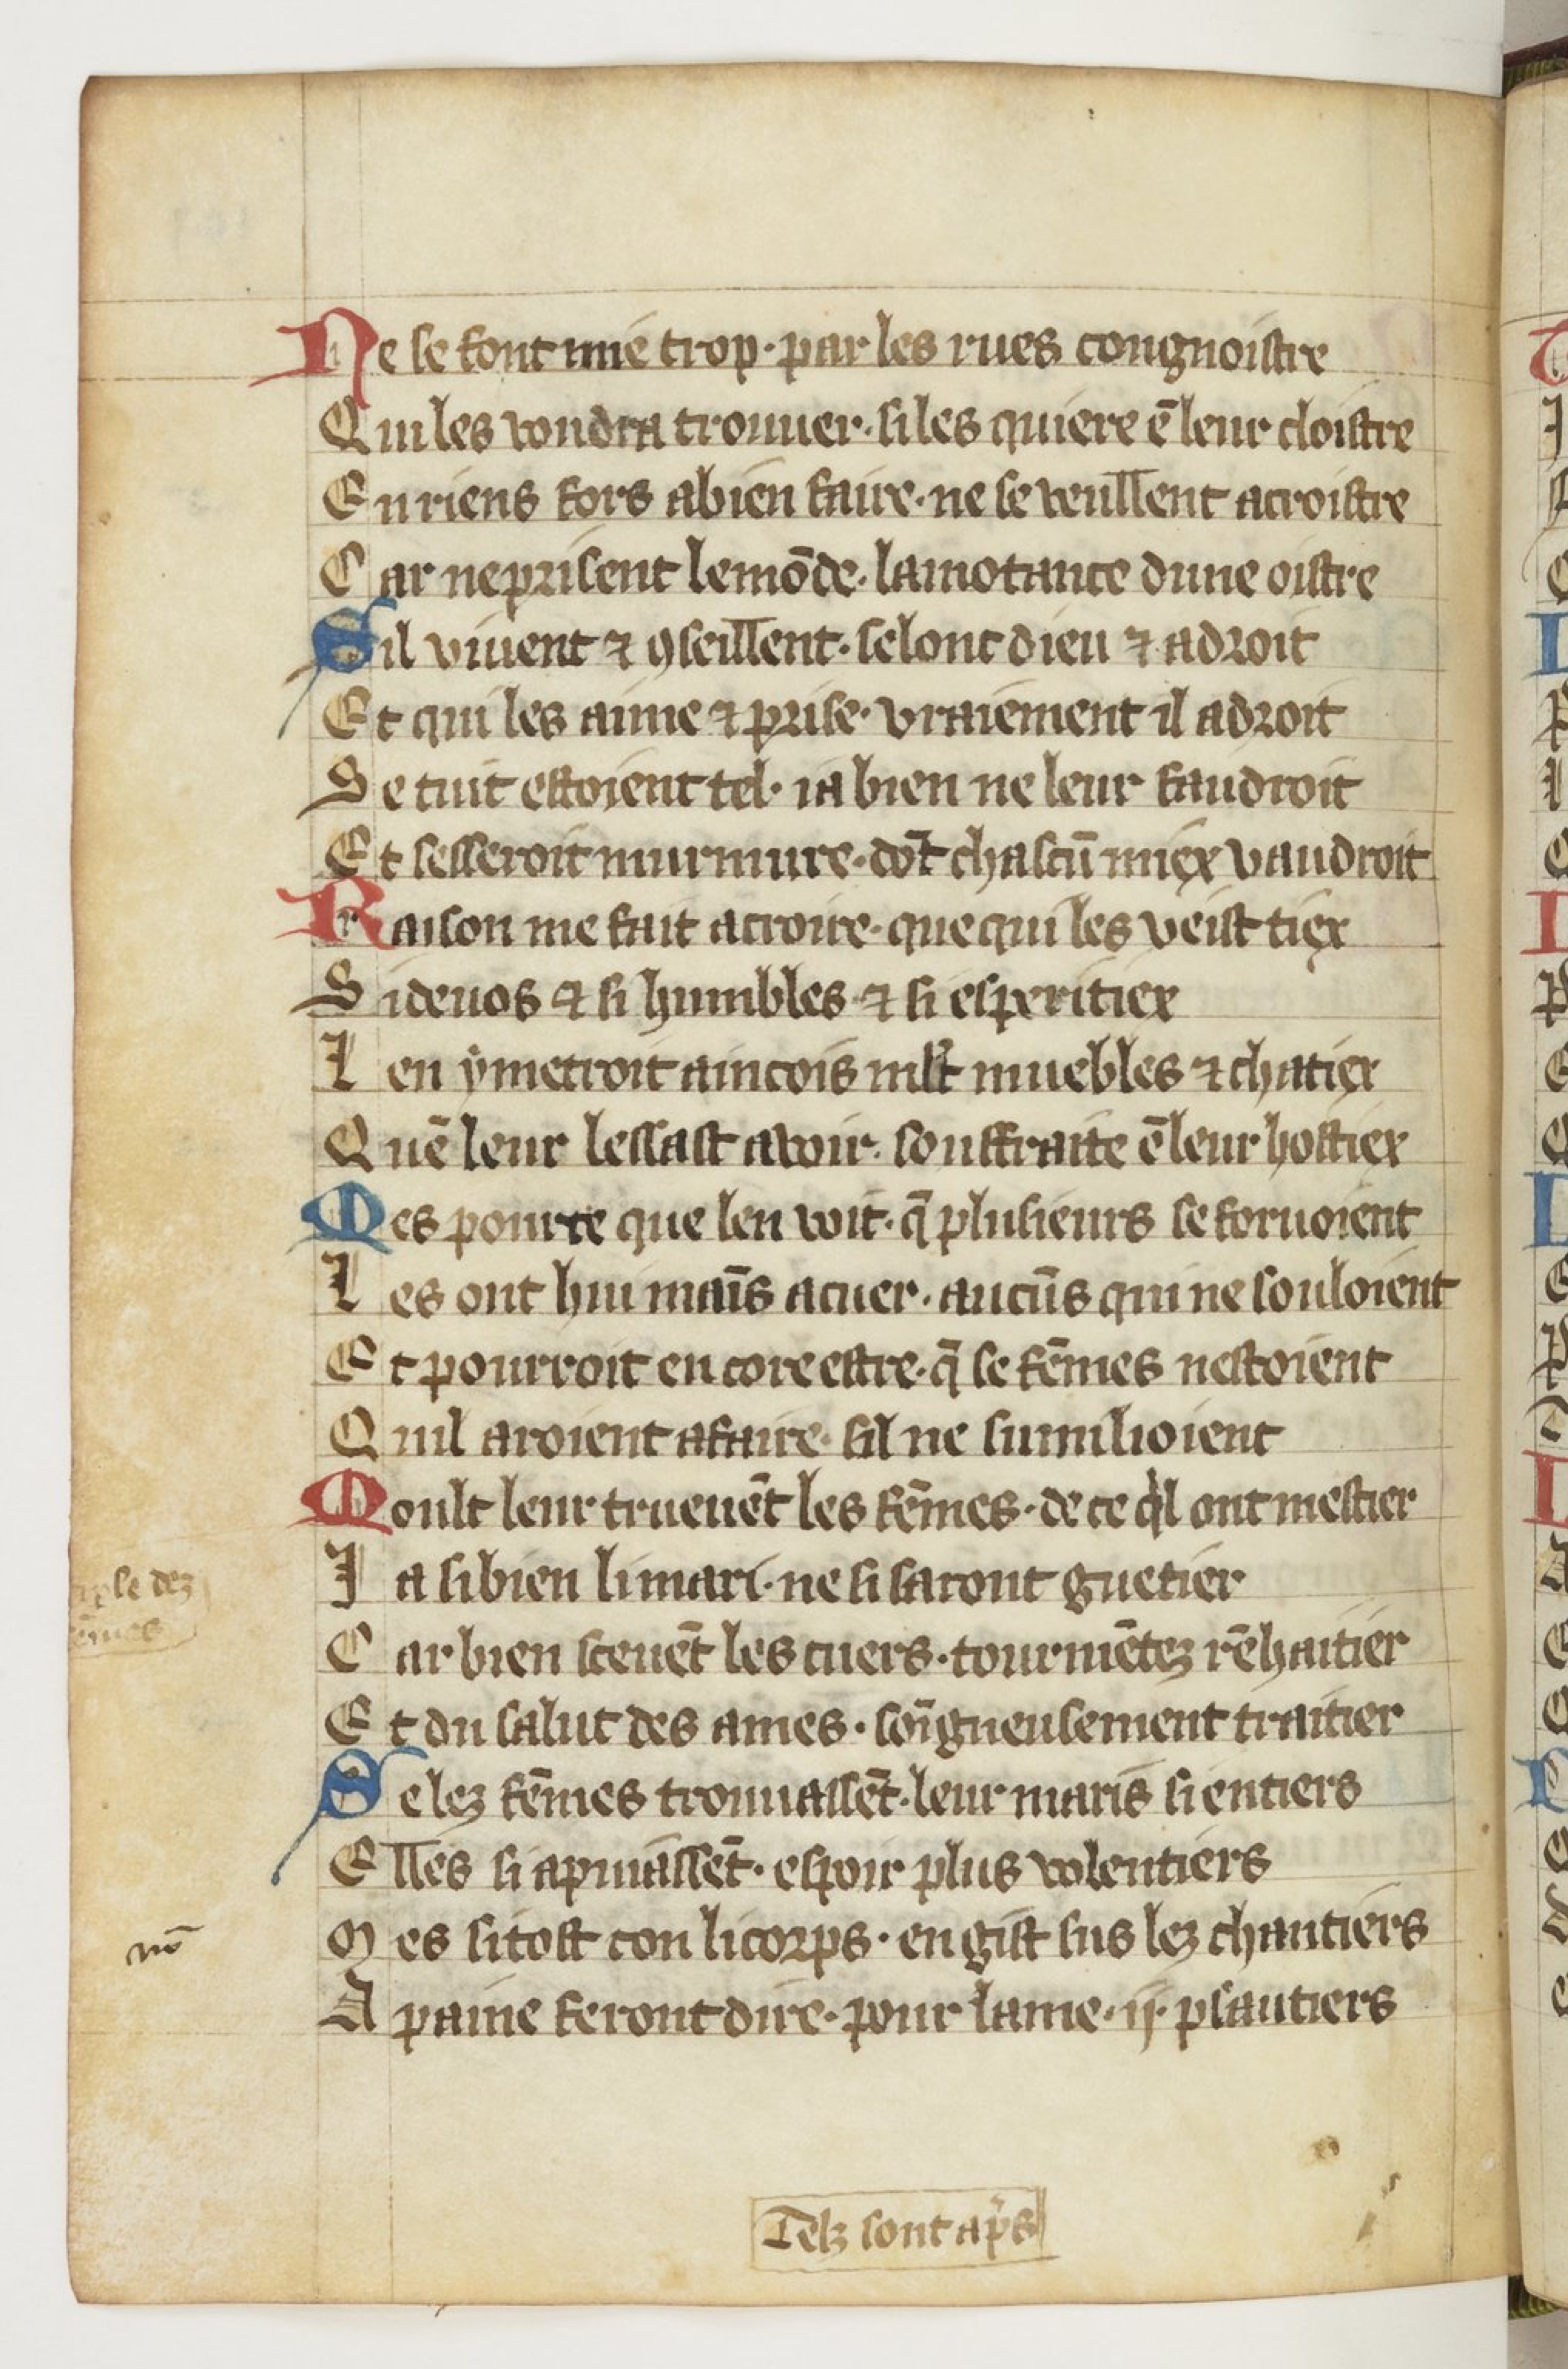 Ne se font mie trop · par les rues congnoistre
Qui les vondra trouuer · si les quiere ē leur cloistre
En riens fors abien faire · ne se veullent acroistre
Car neprisent lemōde · lamotance dune oistre
Sil viuent ⁊ ꝯseillent · selonc dieu ⁊ adroit
Et qui les aime ⁊ prise · vraiement il adroit
Se tuit estoient tel · ia bien ne leur faudroit
Et sesseroit murmure · dōt chascū miex vaudroit
Raison me fait acroire · que qui les veist tiex
Si deuos ⁊ si humbles ⁊ si esperitiex
Len ẏ metroit aincois ml̄t muebles ⁊ chatiex
Quē leur lessast avoir · souffraite ē leur hostiex
Mes pource que len voit · q̄ plusieurs se foruoient
Les ont hui maīs acuer · aucūs qui ne souloient
Et pourroit encore estre · q̄ se fēmes nestoient
Quil aroient afaire · sil ne sumilioient
Moult leur trueuēt les fēmes · de ce qͥl ont mestier
Ja sibien li mari · ne si saront guetier
Car bien sceuēt les cuers · tourmētez rēhaitier
Et du salut des ames · soīgneusement traitier
Se lez fēmes trouuassēt · leur maris si entiers
Elles si apuiassēt · espoir plus volentiers
Mes sitost con licorps · en gist sus lez chantiers
A paine feront dire · pour lame · ij · psautiers
le dez
ēmes
nō
Telz sont ap̄s